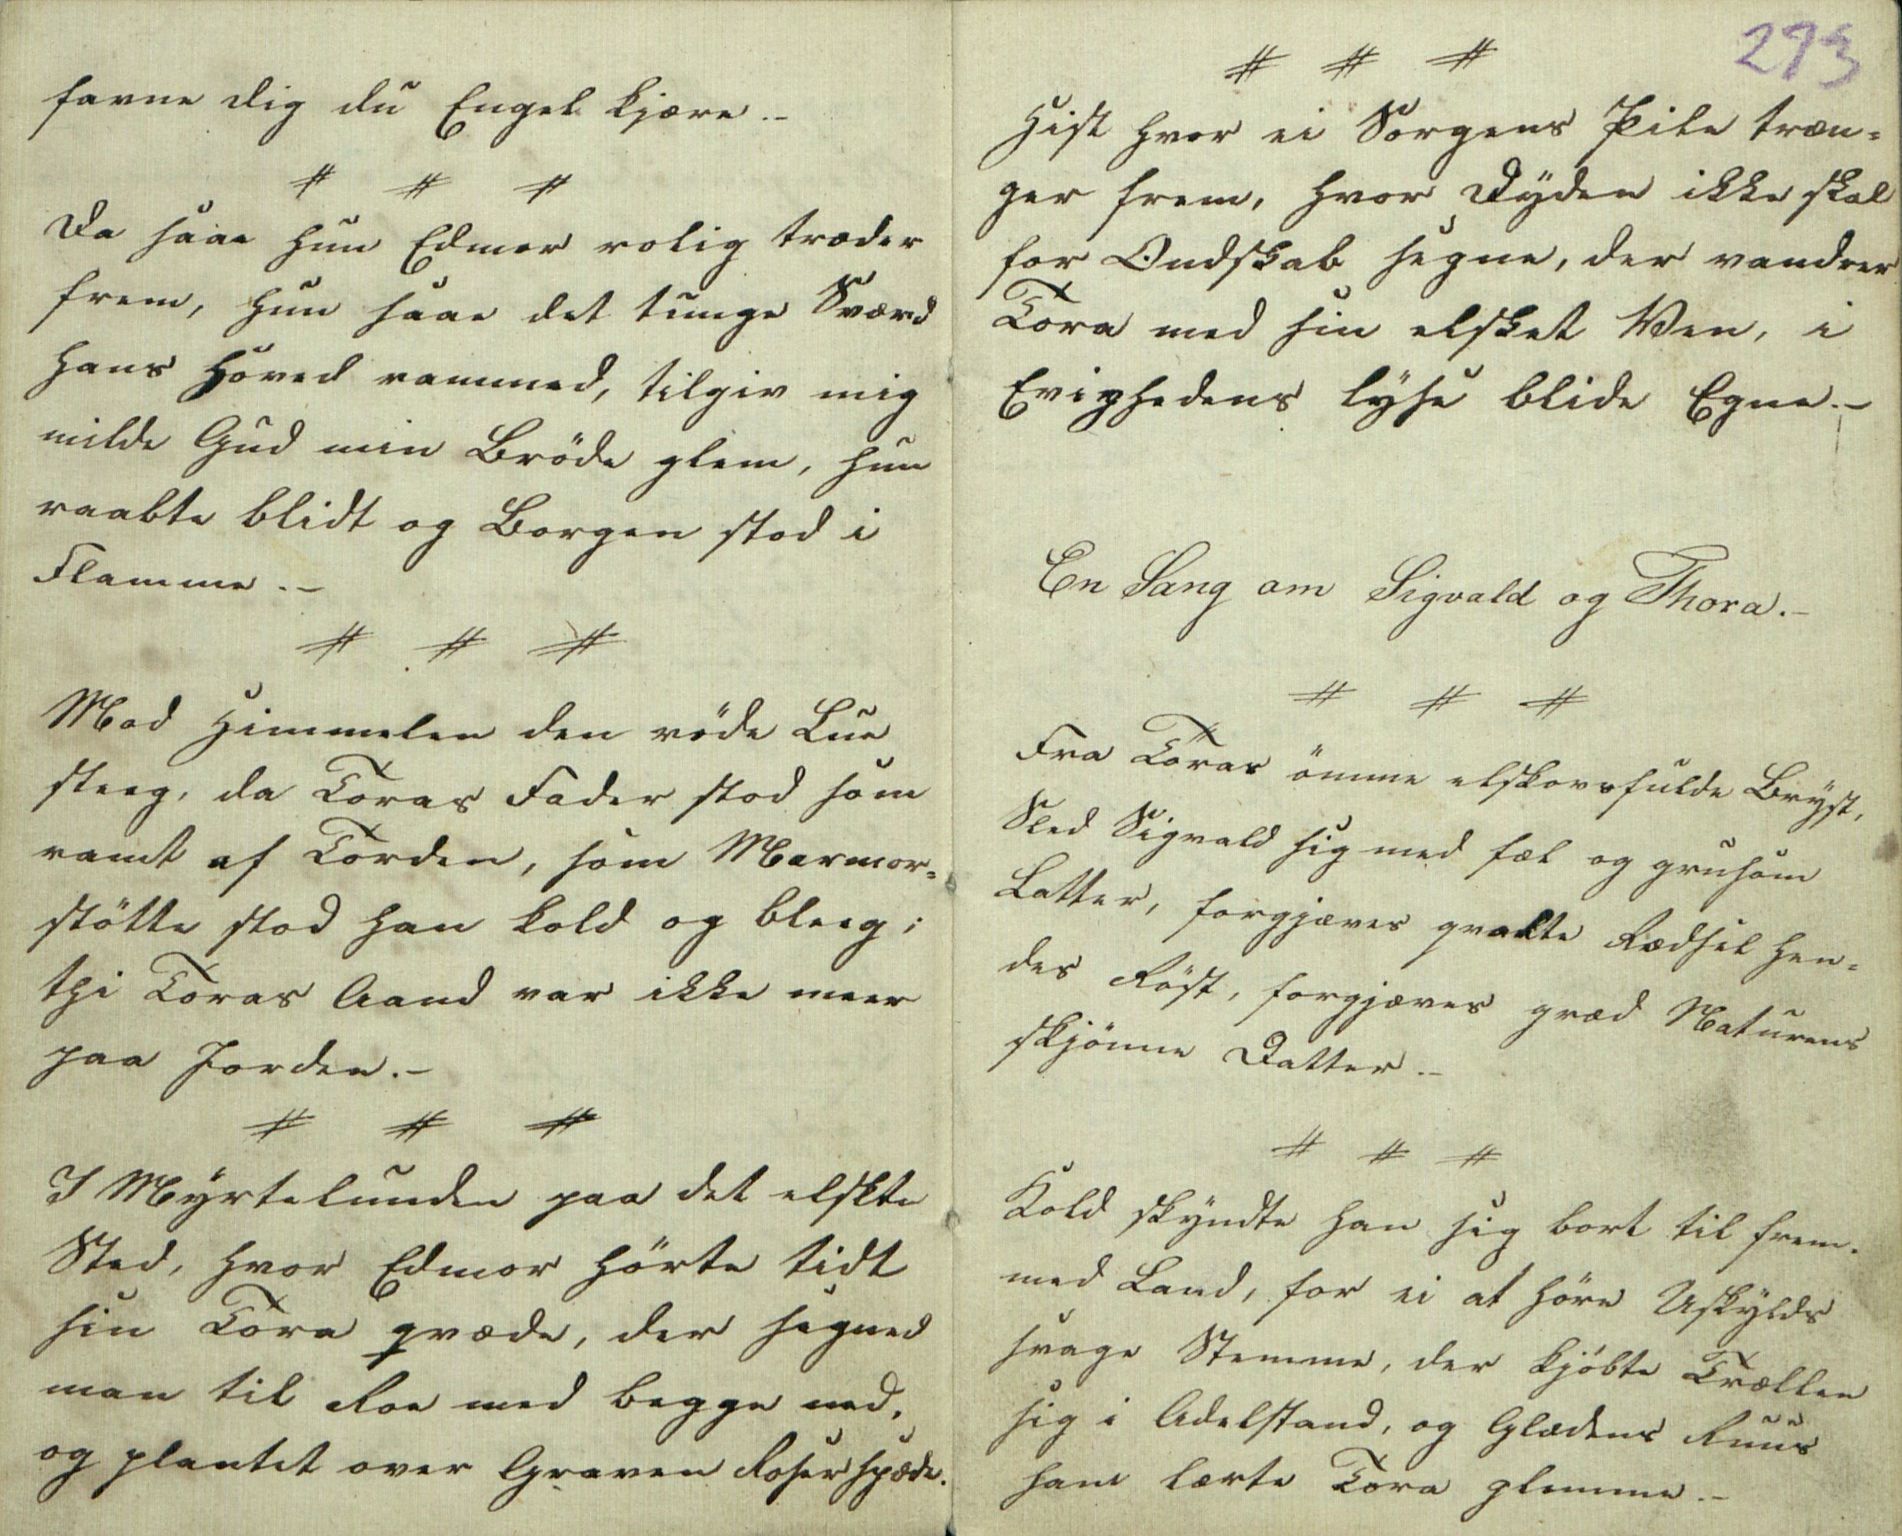 favne dig du Engel kjære .-
# # #
Da saae hun Edmor rolig træder
frem, hun saae det tunge Sværd
hans Hoved rammed, tilgiv mig
milde Gud min Bröde glem, hun
raabte blidt og Borgen stod i
Flamme .-
# # #
Mod Himmelen den röde Lue
steeg, da Toras Fader stod som
ramt af Torden, som Marmor=
stötte stod han kold og bleeg;
thi Toras Aand var ikke meer
paa Jorden.-
# # #
I Myrtelunden paa det elskte
Sted, hvor Edmor hörte tidt
sin Tora qvæde, der segned
man til Roe med begge ned,
og plantet over Graven Roser spæde.
293
# # #
Hist hvor ei Sorgens Pile træn=
ger frem, hvor Dÿden ikke skal
for Ondskab segne, der vandrer
Tora med sin elsket Ven, i
Evighedens lÿse blide Egne.-
En Sang om Sigvald og Thora.-
# # #
Fra Toras ömme elskovsfulde Brÿst,
Sled Sigvald sig med fæl og grusom
Latter, forgjæves qvalte Rædsel hen=
des Röst, forgjæves græd Naturens
skjönne Datter .-
# # #
Kold skÿndte han sig bort til frem=
med Land, for ei at höre Uskÿlds
svage Stemme, der kjöbte Trællen
sig i Adelstand, og Glædens Ruus
ham lærte Tora glemme .-